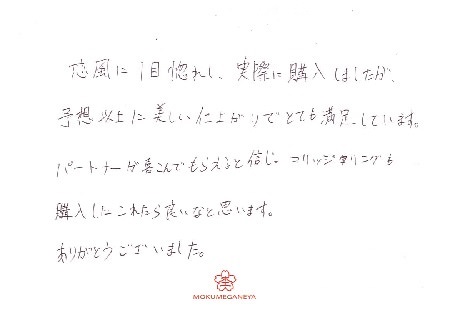 恋風に1目惚れし、実際に購入しましたが、
予想以上に美しい仕上がりでとても満足しています。
パートナーが喜こんでもらえると信じ、マリッジリングも
購入しにこれたら良いなと思います。
ありがとうございました。
MOKUMEGANEYA